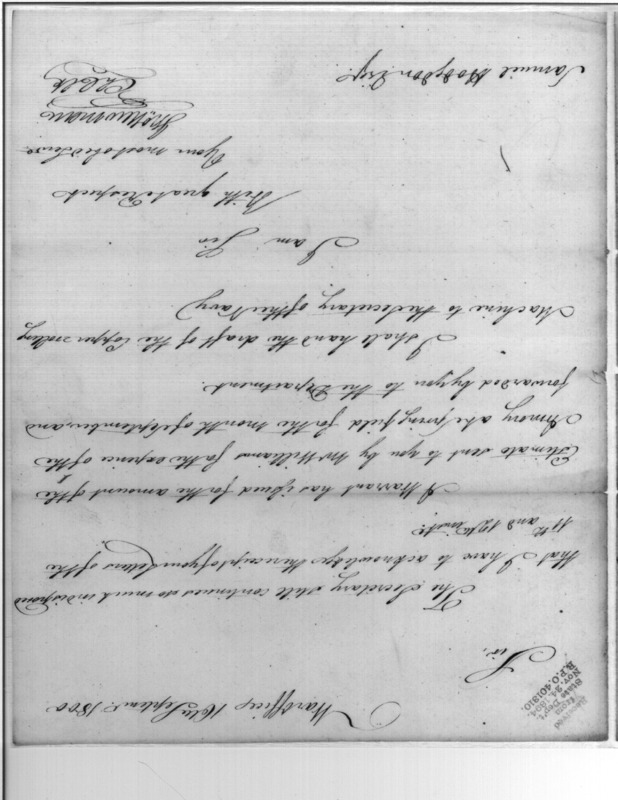 War Office 16th Septemr. 1800
Sir,
The Secretary still continues so much indisposed
that I have to acknowledge the receipt of your letters of the
11th and 12th inst.
A Warrant has issued for the amount of the
Estimate sent to you by Mr Williams for the expence of the
Armory at Springfield for the month of September and
forwarded by you to the Department.
I shall hand the draft of the Copper rolling
Machine to the Secretary of the Navy
I am Sir
With great Respect
Your most obed Serv
Jno Newman
Ch Clk
Samuel Hodgdon Esqr.
Received
from
State Dept.
Nov. 24, 1894.
R.P.O. 401310.